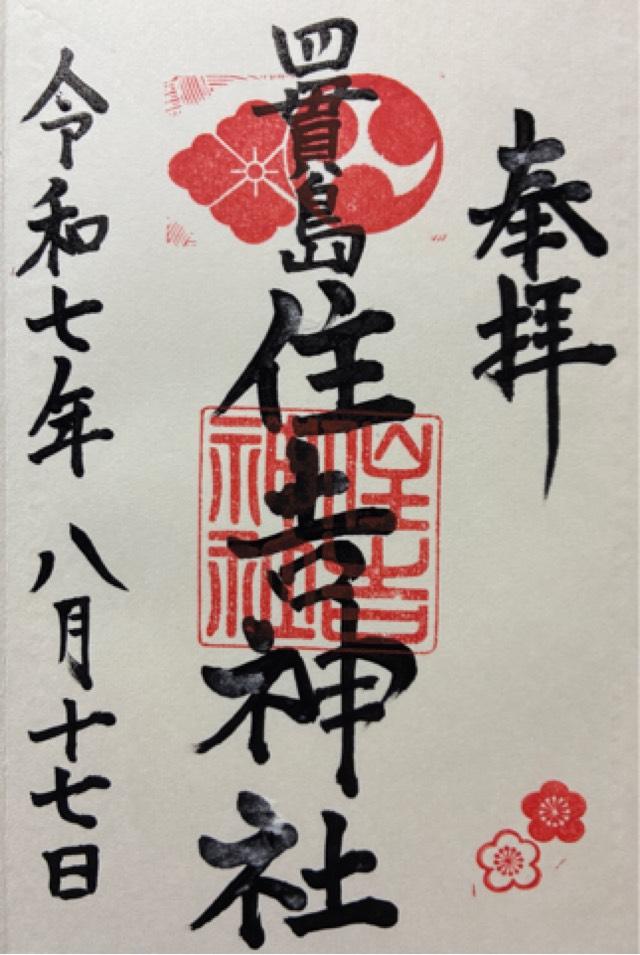 奉拝
四貫島
住吉神社
住吉神社
令和七年 八月十七日